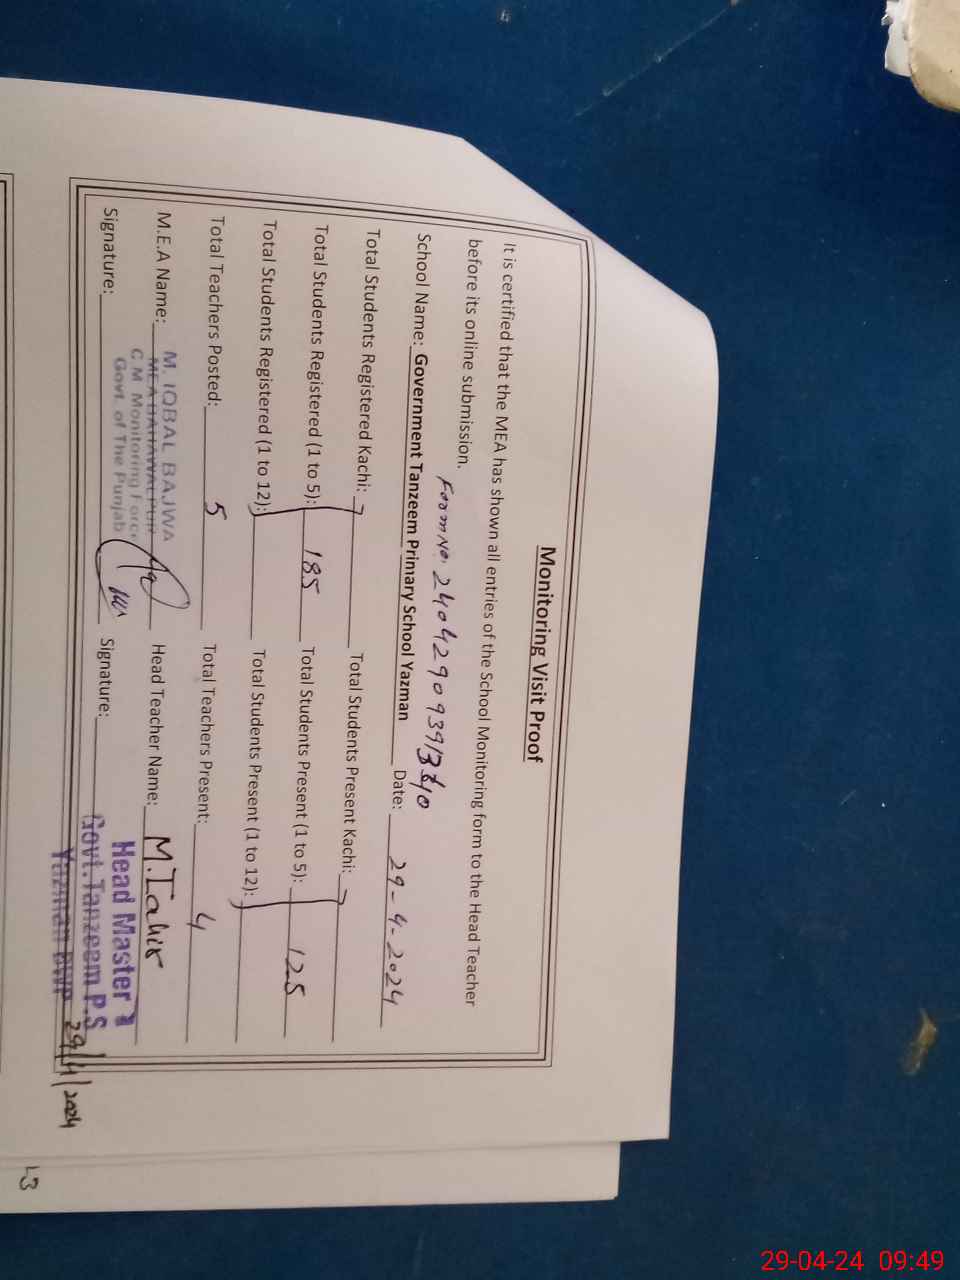 Monitoring Visit Proof
It is certified that the MEA has shown all entries of the School Monitoring form to the Head Teacher
before its online submission.
Form No. 240429093913
School Name: Government Tanzeem Primary School Yazman Date: 29-4-2024
Total Students Registered Kachi: Total Students Present Kachi:
Total Students Registered (1 to 5): 185 Total Students Present (1 to 5): 125
Total Students Registered (1 to 12): Total Students Present (1 to 12):
Total Teachers Posted: 5 Total Teachers Present: 4
M.E.A Name: M. IQBAL BAJWA Head Teacher Name: M. Tahir
MEA BAHAWALPUR
C.M Monitoring Force
Govt. of The Punjab
Signature: Signature:
Head Master
Govt. Tanzeem P.S
Yazman BWP 29/4/2024
13
29-04-24 09:49